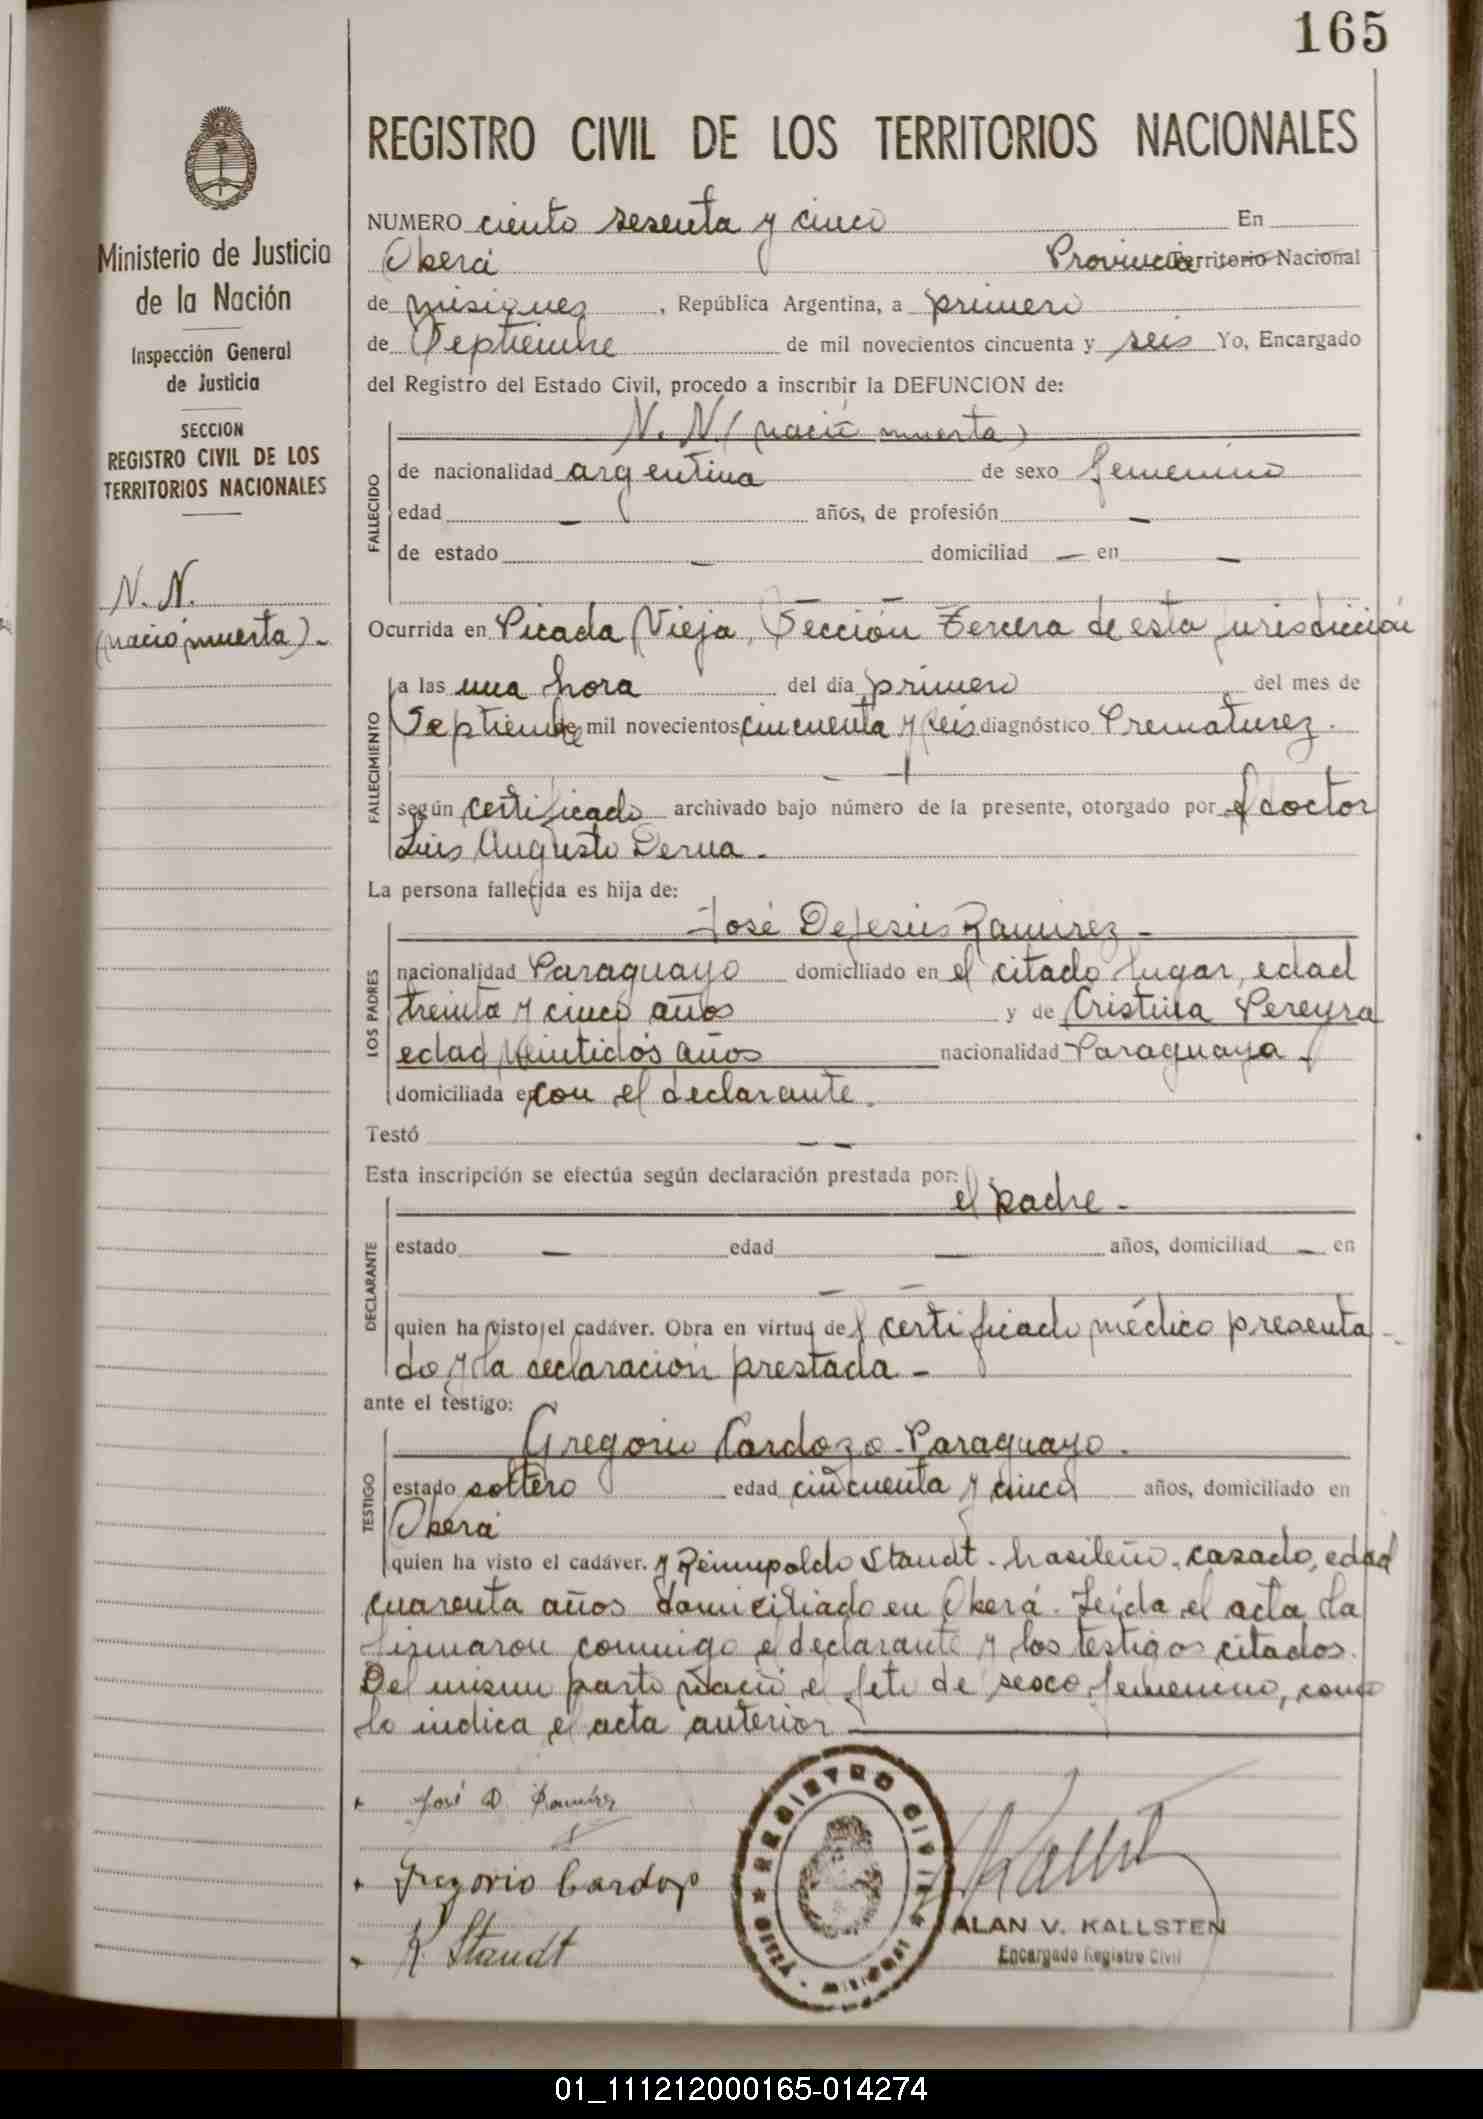 165
REGISTRO CIVIL DE LOS TERRITORIOS NACIONALES
Ministerio de Justicia
de la Nación
Inspección General
de Justicia
SECCION
REGISTRO CIVIL DE LOS
TERRITORIOS NACIONALES
N. N.
(nació muerta).-
NUMERO ciento sesenta y cinco En
Oberá Provincia Territorio Nacional
de misiones, República Argentina, a primero
de Septiembre de mil novecientos cincuenta y seis Yo, Encargado
del Registro del Estado Civil, procedo a inscribir la DEFUNCION de:
N. N. (nació muerta)
FALLECIDO
de nacionalidad argentina de sexo femenino
edad - años, de profesión -
de estado - domiciliad - en -
-
Ocurrida en Picada Vieja, Sección Tercera de esta jurisdicción
FALLECIMIENTO
a las una hora del día primero del mes de
Septiembre de mil novecientos cincuenta y seis diagnóstico Prematurez.
según certificado archivado bajo número de la presente, otorgado por el doctor
Luis Augusto Derna.-
La persona fallecida es hija de:
LOS PADRES
José DeJesús Ramirez-
nacionalidad Paraguayo domiciliado en el citado lugar, edad
treinta y cinco años y de Cristina Pereyra
edad veintidós años nacionalidad Paraguaya.
domiciliada en con el declarante.
Testó - -
Esta inscripción se efectúa según declaración prestada por:
DECLARANTE
el padre.-
estado - edad - años, domiciliad - en
- -
quien ha visto el cadáver. Obra en virtud del certificado médico presenta-
do y la declaración prestada-
ante el testigo:
TESTIGO
Gregorio Cardozo-Paraguayo.
estado soltero edad cincuenta y cinco años, domiciliado en
Oberá
quien ha visto el cadáver. y Reimpoldo Standt-brasileño, casado, edad
cuarenta años domiciliado en Oberá. Leída el acta la
firmaron conmigo el declarante y los testigos citados.
Del mismo parto nació el feto de sexo femenino, como
lo indica el acta anterior
José D. Ramírez
Gregorio Cardozo
R. Standt
REGISTRO CIVIL
MISIONES
ALAN V. KALLSTEN
Encargado Registro Civil
01_111212000165-014274